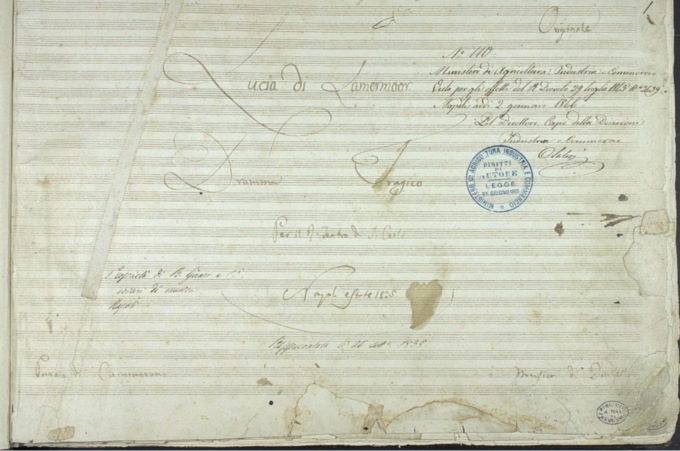 1
Originale
N.º 110.
Ministero di Agricoltura, Industria e Commercio
Visto per gli effetti del R.º Decreto 29 luglio 1865 N.º 2439
Napoli addì 2 gennaio 1866
Pel Direttore Capo della Divisione
Industria e Commercio
Lucia di Lamermoor
Dramma Tragico
MINISTERO DI AGRICOLTURA INDUSTRIA E COMMERCIO
DIRITTI
DI
AUTORE
LEGGE
Per il R. Teatro di S. Carlo
Proprietà di B. Girard e C.i
editori di musica
Napoli
Napoli estate 1835
Rappresentata il 26 1835
Poesia di Cammarano
Musica di